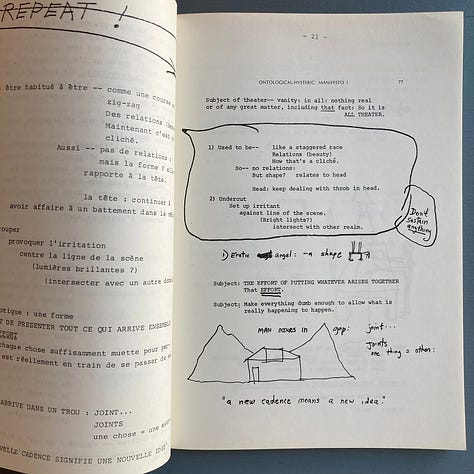 REPEAT !
être habitué à être -- comme une course
zig-zag
Des relations
Maintenant c'est
cliché.
Aussi -- pas de relations
mais la forme ?
rapporte à la tête.
la tête : continuer
avoir affaire à un battement dans la
couper
provoquer l'irritation
centre la ligne de la scène
(lumières brillantes ?)
(intersecter avec un autre
: une forme
DE PRESENTER TOUT CE QUI ARRIVE ENSEMBLE
EFFORT
chaque chose suffisamment muette pour
est réellement en train de se passer
ARRIVE DANS UN TROU : JOINT...
JOINTS
une chose = une
CADENCE SIGNIFIE UNE NOUVELLE
- 21 -
ONTOLOGICAL-HYSTERIC: MANIFESTO I
77
Subject of theater-- vanity: in all: nothing real
or of any great matter, including that fact: So it is
ALL THEATER.
1) Used to be-- like a staggered race
Relations (beauty)
Now that's a cliché.
So-- no relations:
But shape? relates to head
Head: keep dealing with throb in head.
2) Undercut
Set up irritant
against line of the scene.
(Bright lights?)
intersect with other realm.
Don't
sustain
anything
1) Erotic angel: - a shape
Subject: THE EFFORT OF PUTTING WHATEVER ARISES TOGETHER
That EFFORT.
Subject: Make everything dumb enough to allow what is
really happening to happen.
MAN OCCURS in gap: joint...
Joints
one thing = other.
"a new cadence means a new idea."